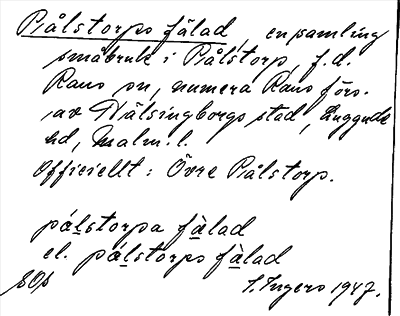 Pålstorps fälad, en samling
småbruk i Pålstorp, f.d.
Raus sn, numera Raus förs.
av Hälsingborgs stad, Luggude
hd, Malm. l.
Officiellt: Övre Pålstorp.
pålstorpa fälad
el. pålstorps fälad
S. Ingers 1947.